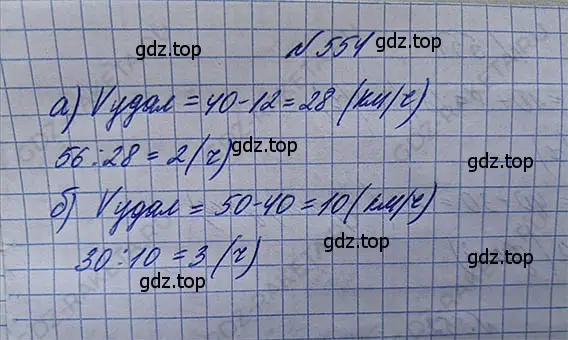 №554
gdz.top gdz.top
а) Vудал = 40-12 = 28 (км/ч)
gdz.top
56:28 = 2 (ч) gdz.top
б) Vудал = 50-40 = 10 (км/ч)
gdz.top
30:10 = 3 (ч)
gdz.top